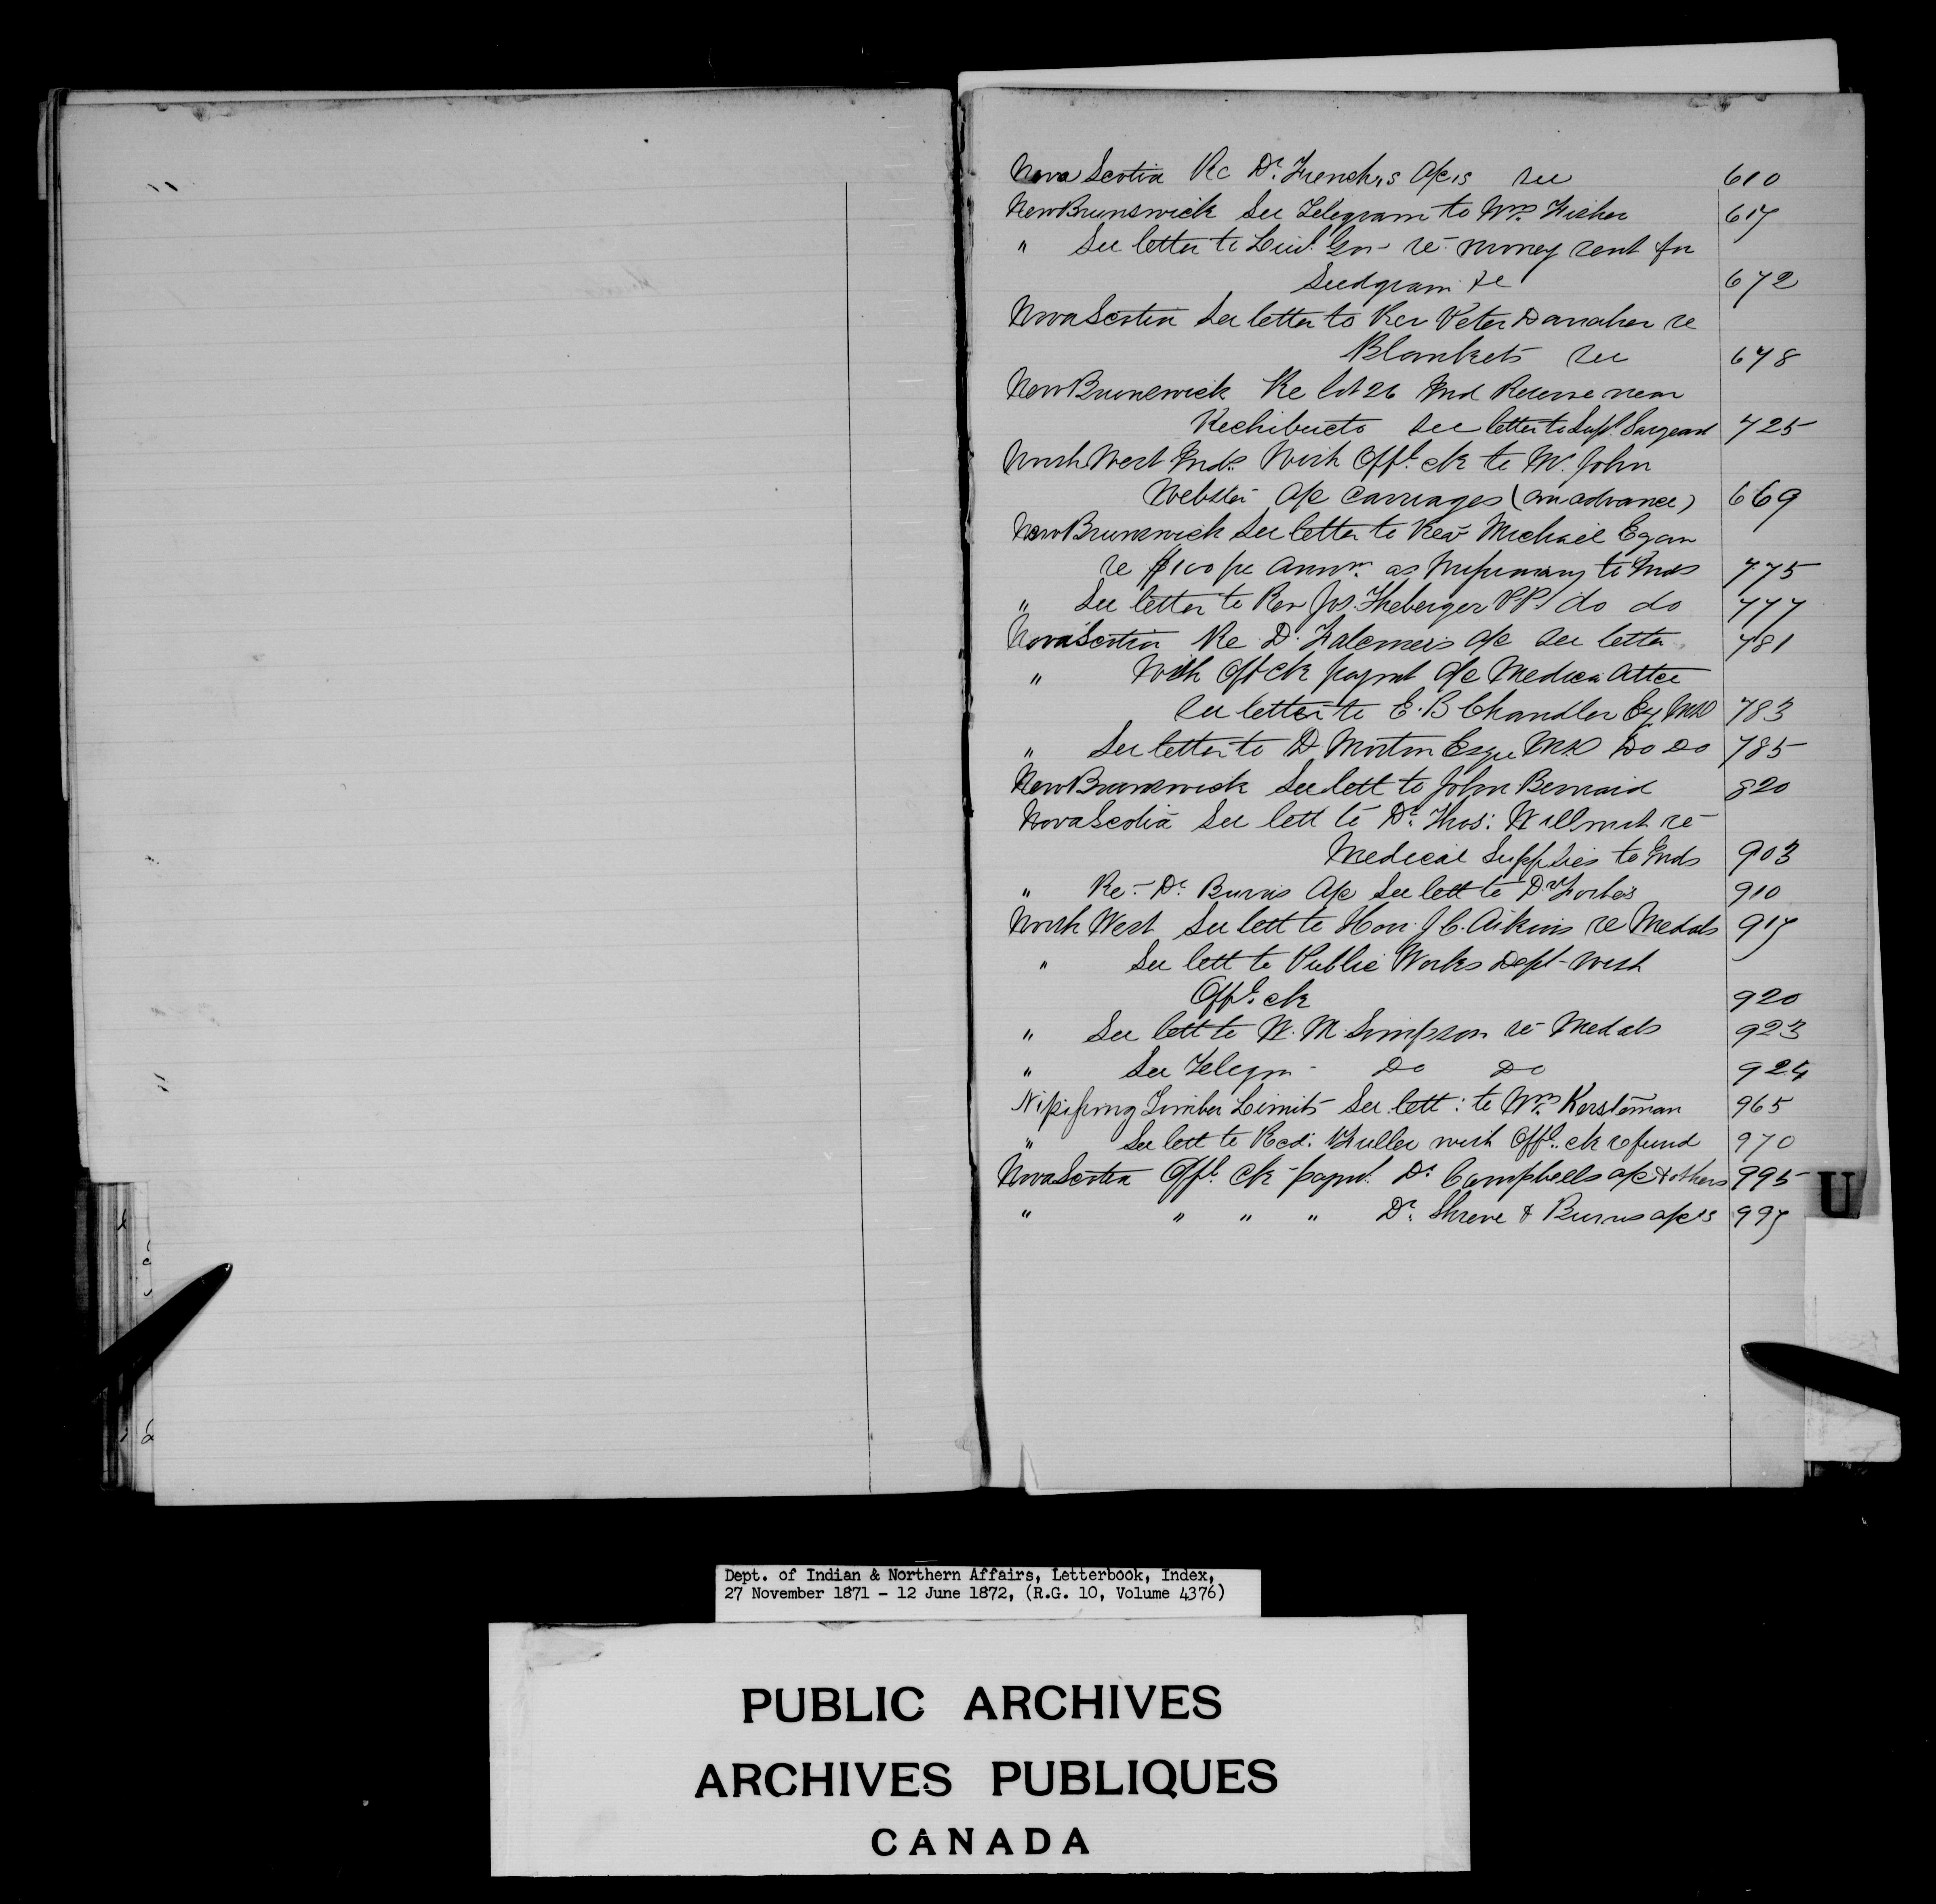 Nova Scotia Re Dr. French's a/cs see 610
New Brunswick See Telegram to Wm. Fisher 617
" See letter to Lieut. Gov re money sent for
Seedgrain &c 672
Nova Scotia See letter to Rev Peter Danaher re
Blankets see 678
New Brunswick Re lot 26 Ind Reserve near
Rechibucto see letter to Supt. Sargeant 725
North West Inds. With Offl. ck to M. John
Webster a/c carriages (an advance) 669
New Brunswick See letter to Rev Michael Egan
re $100 pr Annm. as Missionary to Inds 775
" See letter to Rev Jos. Theberger P.P. do do 777
Nova Scotia Re D. Falconer's a/c see letter 781
" With Off ck paymt a/c Medica Attce
see letter to E. B Chandler Esq MD 783
" See letter to D Morton Esqre MD Do Do 785
New Brunswick See lett to John Bernard 820
Nova Scotia See lett to Dr. Thos: Wallmut re
Medical Supplies to Inds 903
" Re Dr. Burns a/c See lett to Dr Forbes 910
North West See lett to Hon J C. Aikins re Medals 917
" See lett to Public Works Dept with
Offl. ck 920
" See lett to W. M. Simpson re Medals 923
" See Telegm Do Do 924
Nipissing Timber Limits See lett: to Wm. Kersteman 965
" See lett to Red: Fuller with Offl. ck refund 970
Nova Scotia Offl. ck paymt. Dr. Campbells a/c & others 995
" " " " Dr. Shreve & Burns a/cs 997
U
Dept. of Indian & Northern Affairs, Letterbook, Index,
27 November 1871 - 12 June 1872, (R.G. 10, Volume 4376)
PUBLIC ARCHIVES
ARCHIVES PUBLIQUES
CANADA